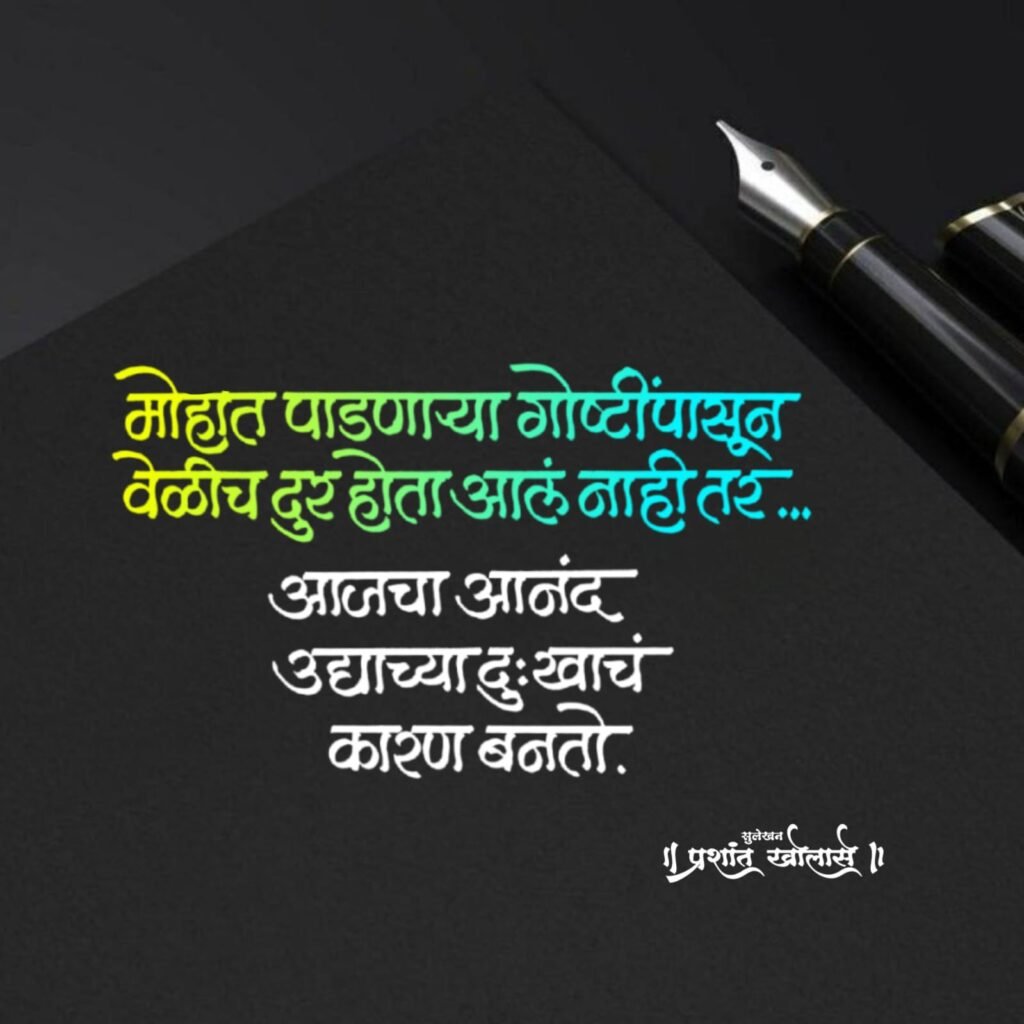 मोहात पाडणाऱ्या गोष्टींपासून
वेळीच दुर होता आलं नाही तर ...
आजचा आनंद
उद्याच्या दुःखाचं
कारण बनतो.
सुलेखन
॥ प्रशांत खोलासे ॥